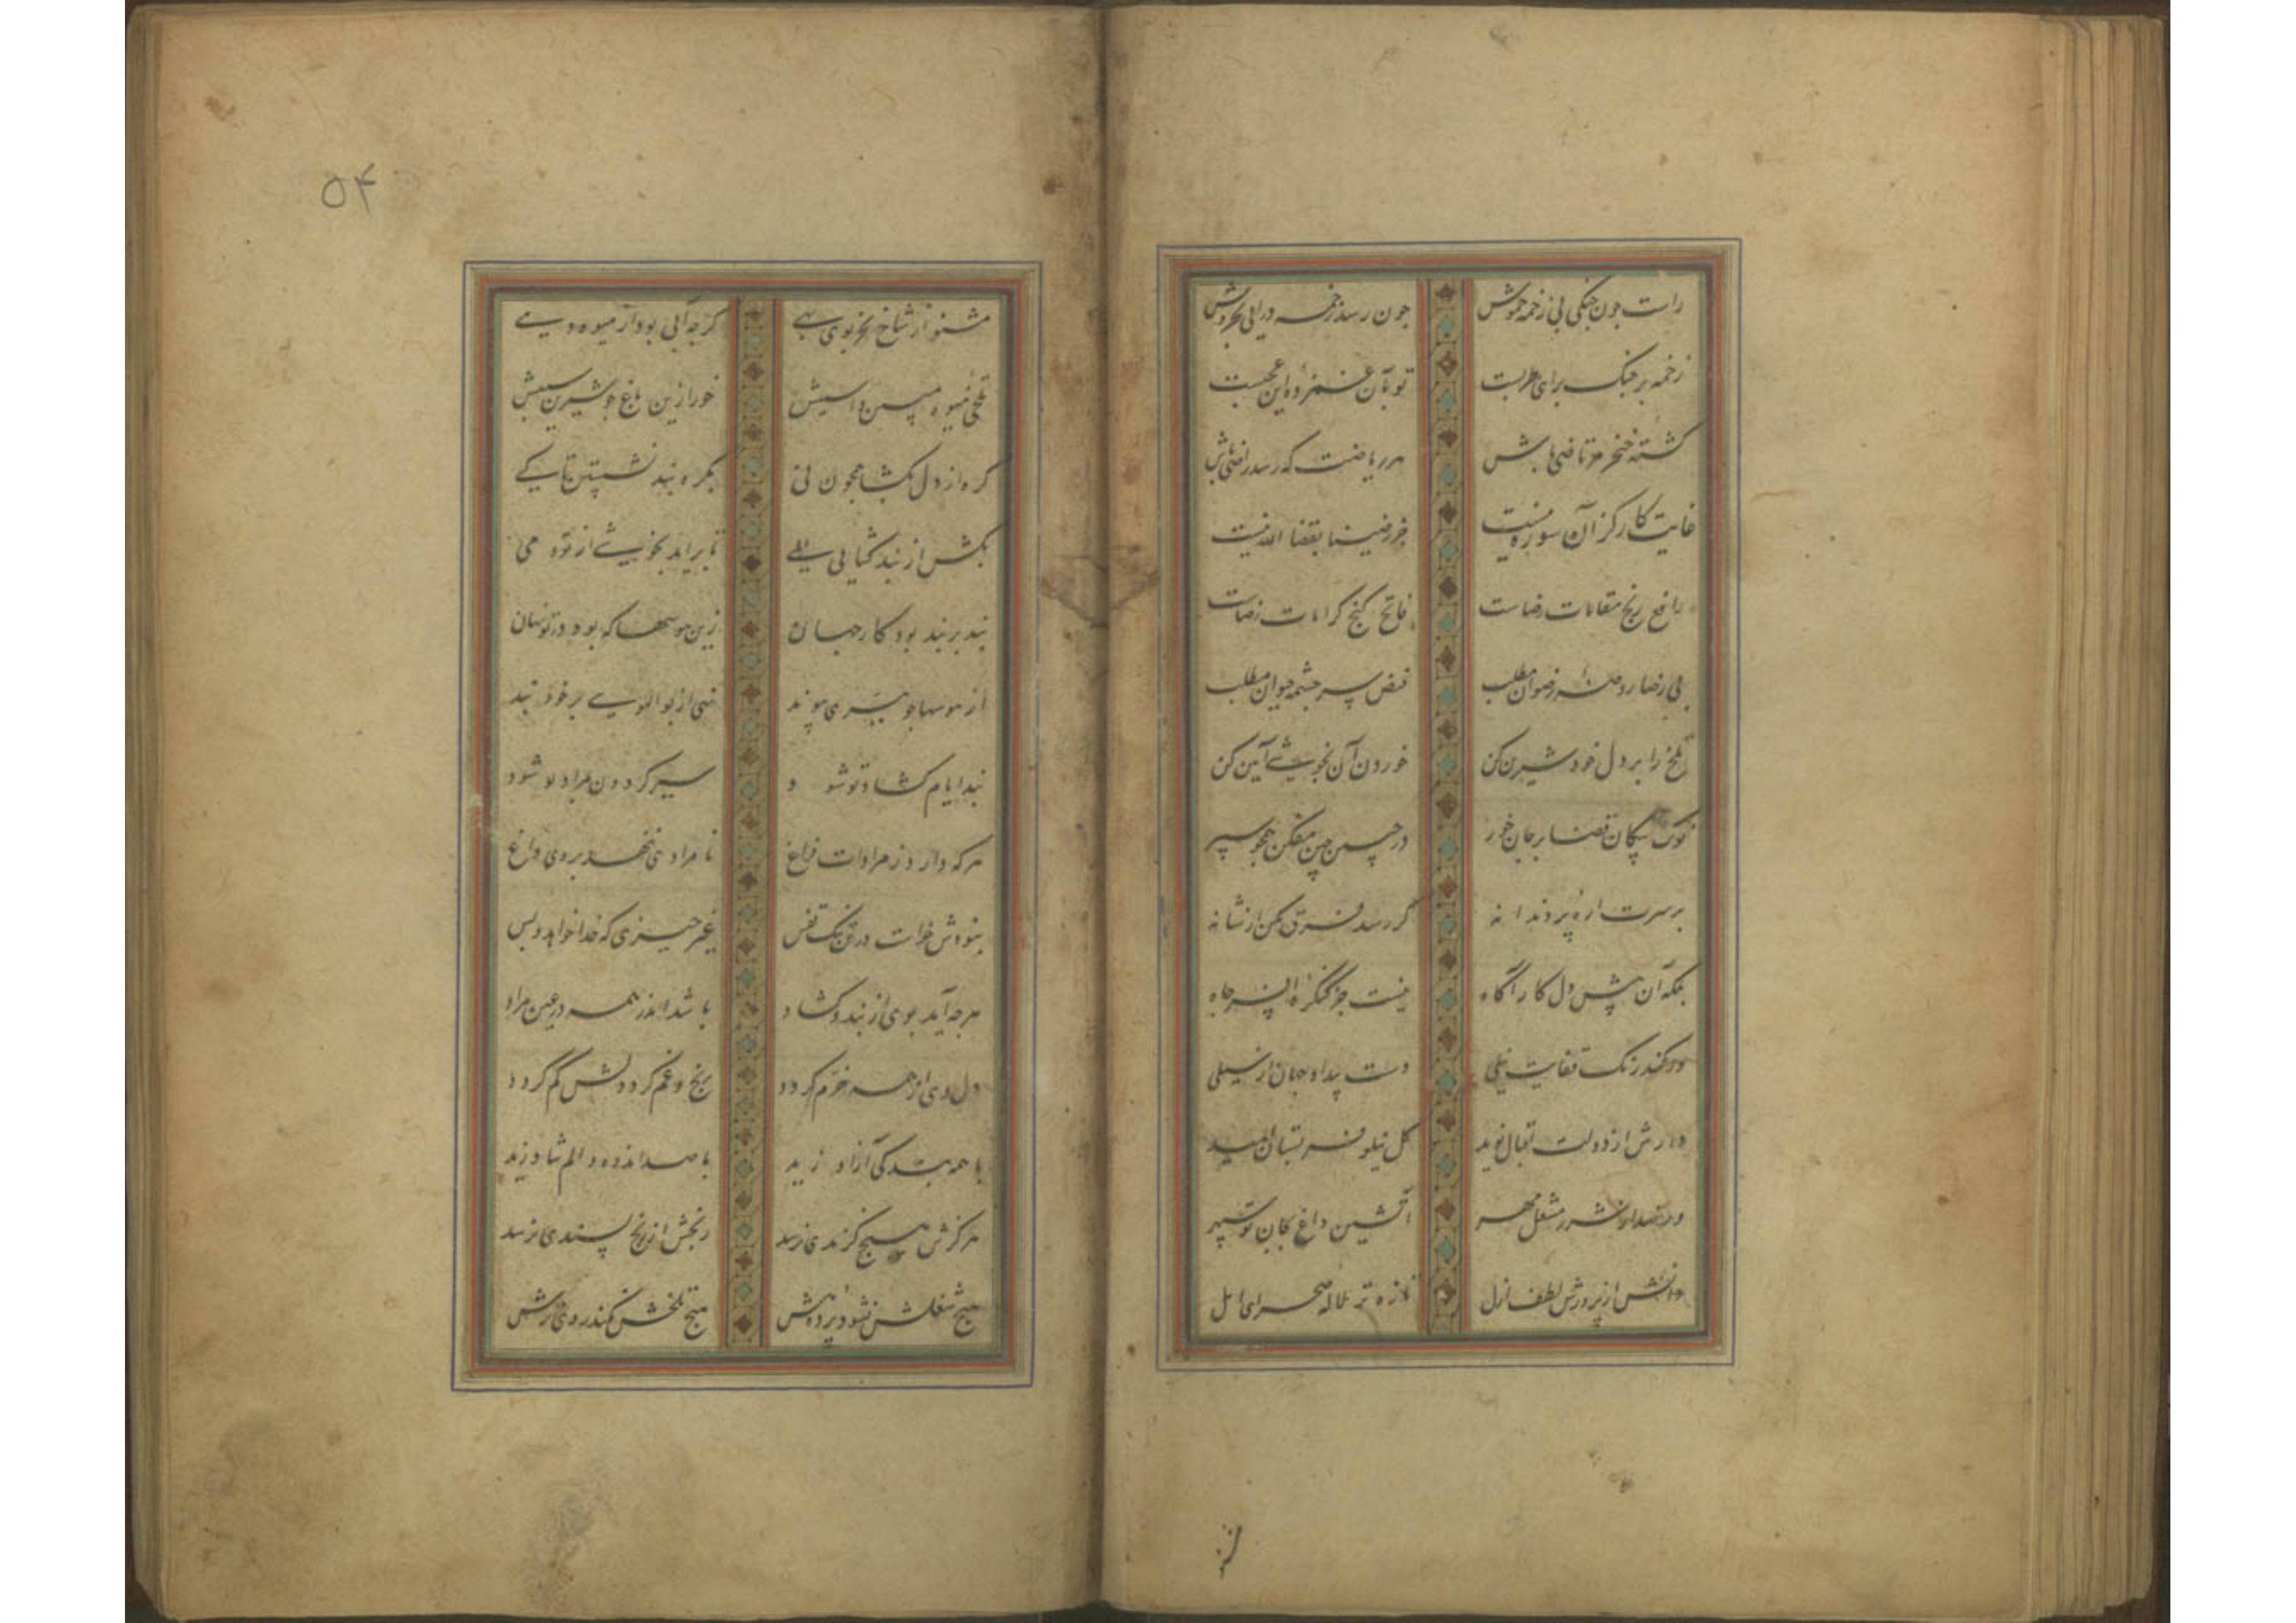 راست چون چنگی بی زخمه خموش چون رسد زخمه درایی بخروش
زخمه بر چنگ برای طربست تو بآن غمزده این عجبست
کشته خنجر مرتاضی باش هر ریاضت که رسد راضی باش
غایت کار کز آن سوره نیست جز رضینا بقضاء الله نیست
رافع رنج مقامات رضاست فاتح کنج کرامات رضاست
بی رضا روضه رضوان مطلب فیض سرچشمه حیوان مطلب
تلخ را بر دل خود شیرین کن خوردن آن بخوشی آیین کن
نوک پیکان قضا بر جان خور در جبین چین مفکن همچو سپر
بر سرت اره پر دندانه گر رسد فرق مکن از شانه
بلکه آن پیش دل کار آگاه نیست جز کنگره افسر جاه
ور کند رنگ قفایت نیلی دست بیداد جهان از سیلی
دارش از دولت اقبال نوید گل نیلوفر بستان امید
ور نهد از شرر مشعل مهر آتشین داغ بجان تو سپهر
دانش از پرورش لطف ازل تازه تر لاله صحرای امل
مشنو از شاخ بجز بوی بهی گر چه آبی بود از میوه دهی
تلخی میوه مبین واسیبش خور ازین باغ چو شیرین سیبش
گره از دل بگشا همچون نی بگره بند نشستن تا کی
بکش از بند گشایی
تا براید بخوشی از تو دمی
بند بر بند بود کار جهان زین هوسها که بود در تو نهان
از هوسها چو ببری پیوند ننهی از بوالهوسی بر خود بند
بند ایام گشاد تو شود سیر گردون بمراد تو شود
هر که دارد ز مرادات فراغ نامرادی ننهد بر وی داغ
نبودش خواست درین تنگ قفس غیر چیزی که خدا خواهد و بس
هر چه آید بوی از بند و گشاد باشد اندر همه در عین مراد
دل وی از همه خرم گردد رنج و غم گرد دلش کم گردد
با همه بندگی آزاد زید با صد اندوه و الم شاد زید
هرگزش هیچ گزندی نرسد رنجش از رنج پسندی نرسد
هیچ شغلش نشود پرده هش هیچ تلخش نکند روی ترش
۵۴